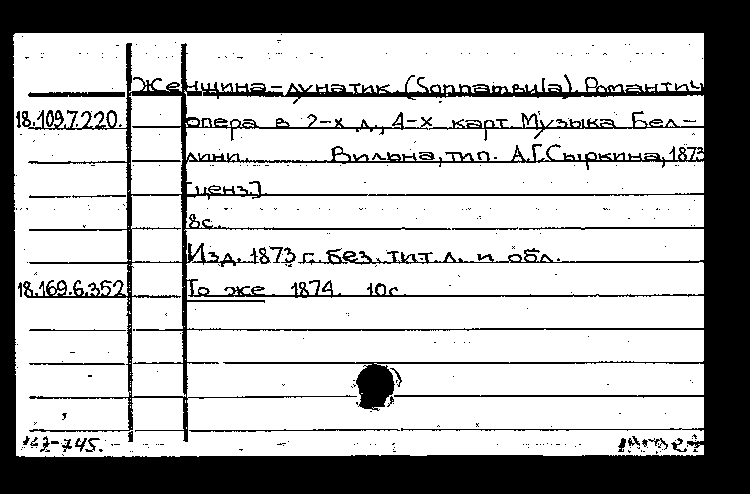 Женщина-лунатик. (Sonnambula). Романтич
18.109.7.220. опера в 2-х д., 4-х карт. Музыка Бел-
лини. Вильна, тип. А.Г. Сыркина, 1873
[ценз.]
8с.
Изд. 1873 г. без тит. л. и обл.
18.169.6.352 То же 1874. 10с.
142-745.